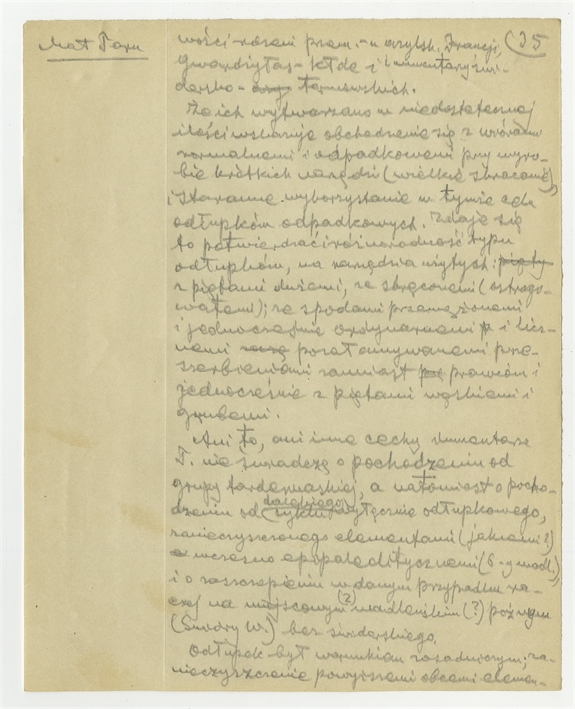 Mat Tarn
35
wości rdzeni przem. - u azylsk. Francji,
Gwardzytas - Kłde i inwentarzy świ-
dersko - tarnowskich.
Że ich wytwarzano w niedostatecznej
ilości wskazuje obchodzenie się z wiórami
normalnemi i odpadkowemi przy wyro-
bie krótkich narzędzi (wielkie skracanie),
i staranne wykorzystanie w tymże celu
odłupków odpadkowych. Zdaje się
to potwierdzać różnorodność typu
odłupków, na narzędzia użytych: pięty
z piętami dużemi, ze skręconemi (ostrogo-
watemi); ze spodami przewężonemi
i jednocześnie ordynarnemi i licz-
nemi pozałamywanemi prze-
szerbieniami zamiast prawców i
jednocześnie z piętami wąskiemi i
grubemi.
Ani to, ani inne cechy inwentarza
T. nie świadczą o pochodzeniu od
grupy tardenuaskiej, a natomiast o pocho-
dzeniu od dalekiego cyklu wyłącznie odłupkowego,
zanieczyszczonego elementami (jakiemi?)
wczesno epipaleolitycznemi (6-y model),
i o rozszczepieniu w danym przypadku ra-
czej na miejscowym (2) madleńskim (?) późnym
(Świdry W.) bez świderskiego.
Odłupek był warunkiem zasadniczym; za-
nieczyszczenie powyższemi obcemi elemen-